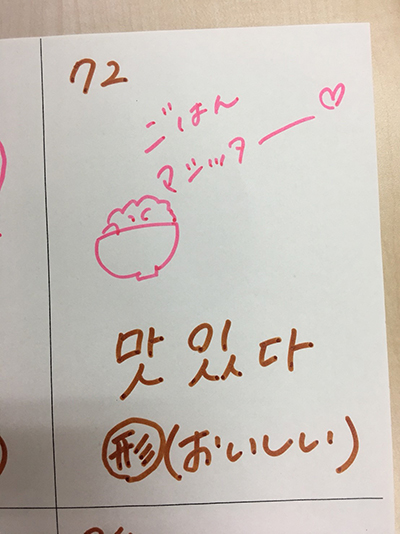 72
ごはん
マシッター♡
맛있다
形(おいしい)